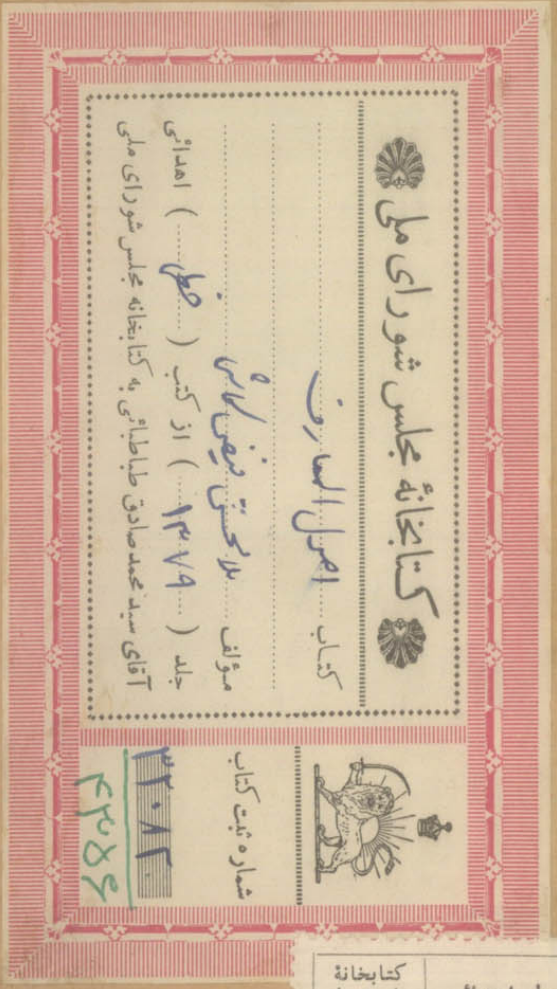 کتابخانهٔ مجلس شورای ملی
کتاب اصول المعارف
مؤلف ملا محسن فیض کاشی
جلد ( ۱۳۷۹ ) از کتب ( خطی ) اهدائی
آقای سید محمد صادق طباطبائی به کتابخانه مجلس شورای ملی
شماره ثبت کتاب
۳۲۰۸۲
کتابخانهٔ